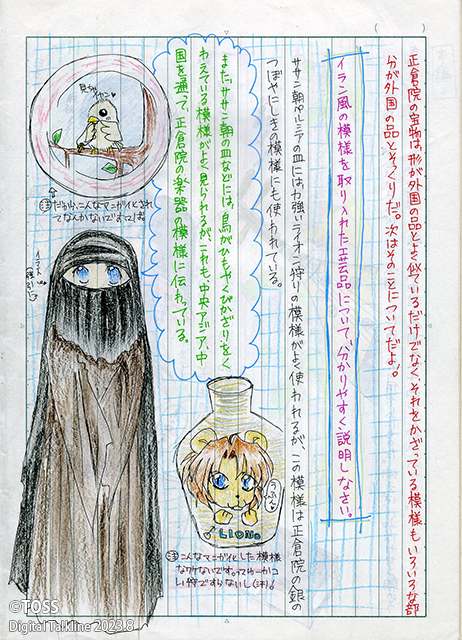 正倉院の宝物は、形が外国の品とよく似ているだけでなく、それをかざっている模様もいろいろな部
分が外国の品とそっくりだ。次はそのことについてだよ!
イラン風の模様を取り入れた工芸品について、分かりやすく説明しなさい。
ササン朝ペルシアの皿には力強いライオン狩りの模様がよく使われるが、この模様は正倉院の銀の
つぼやにしきの模様にも使われている。
また、ササン朝の皿などには、鳥がひもやくびかざりをく
わえている模様がよく見られるが、これも中央アジア、中
国を通って、正倉院の楽器の模様に伝わっている。
見ちゃヤン♥
注 だから、こんなマンガ化され
てなんかないですってば
LION
注 こんなマンガ化した模様
なワケないです。
©TOSS
Digital Talkline 2023.8